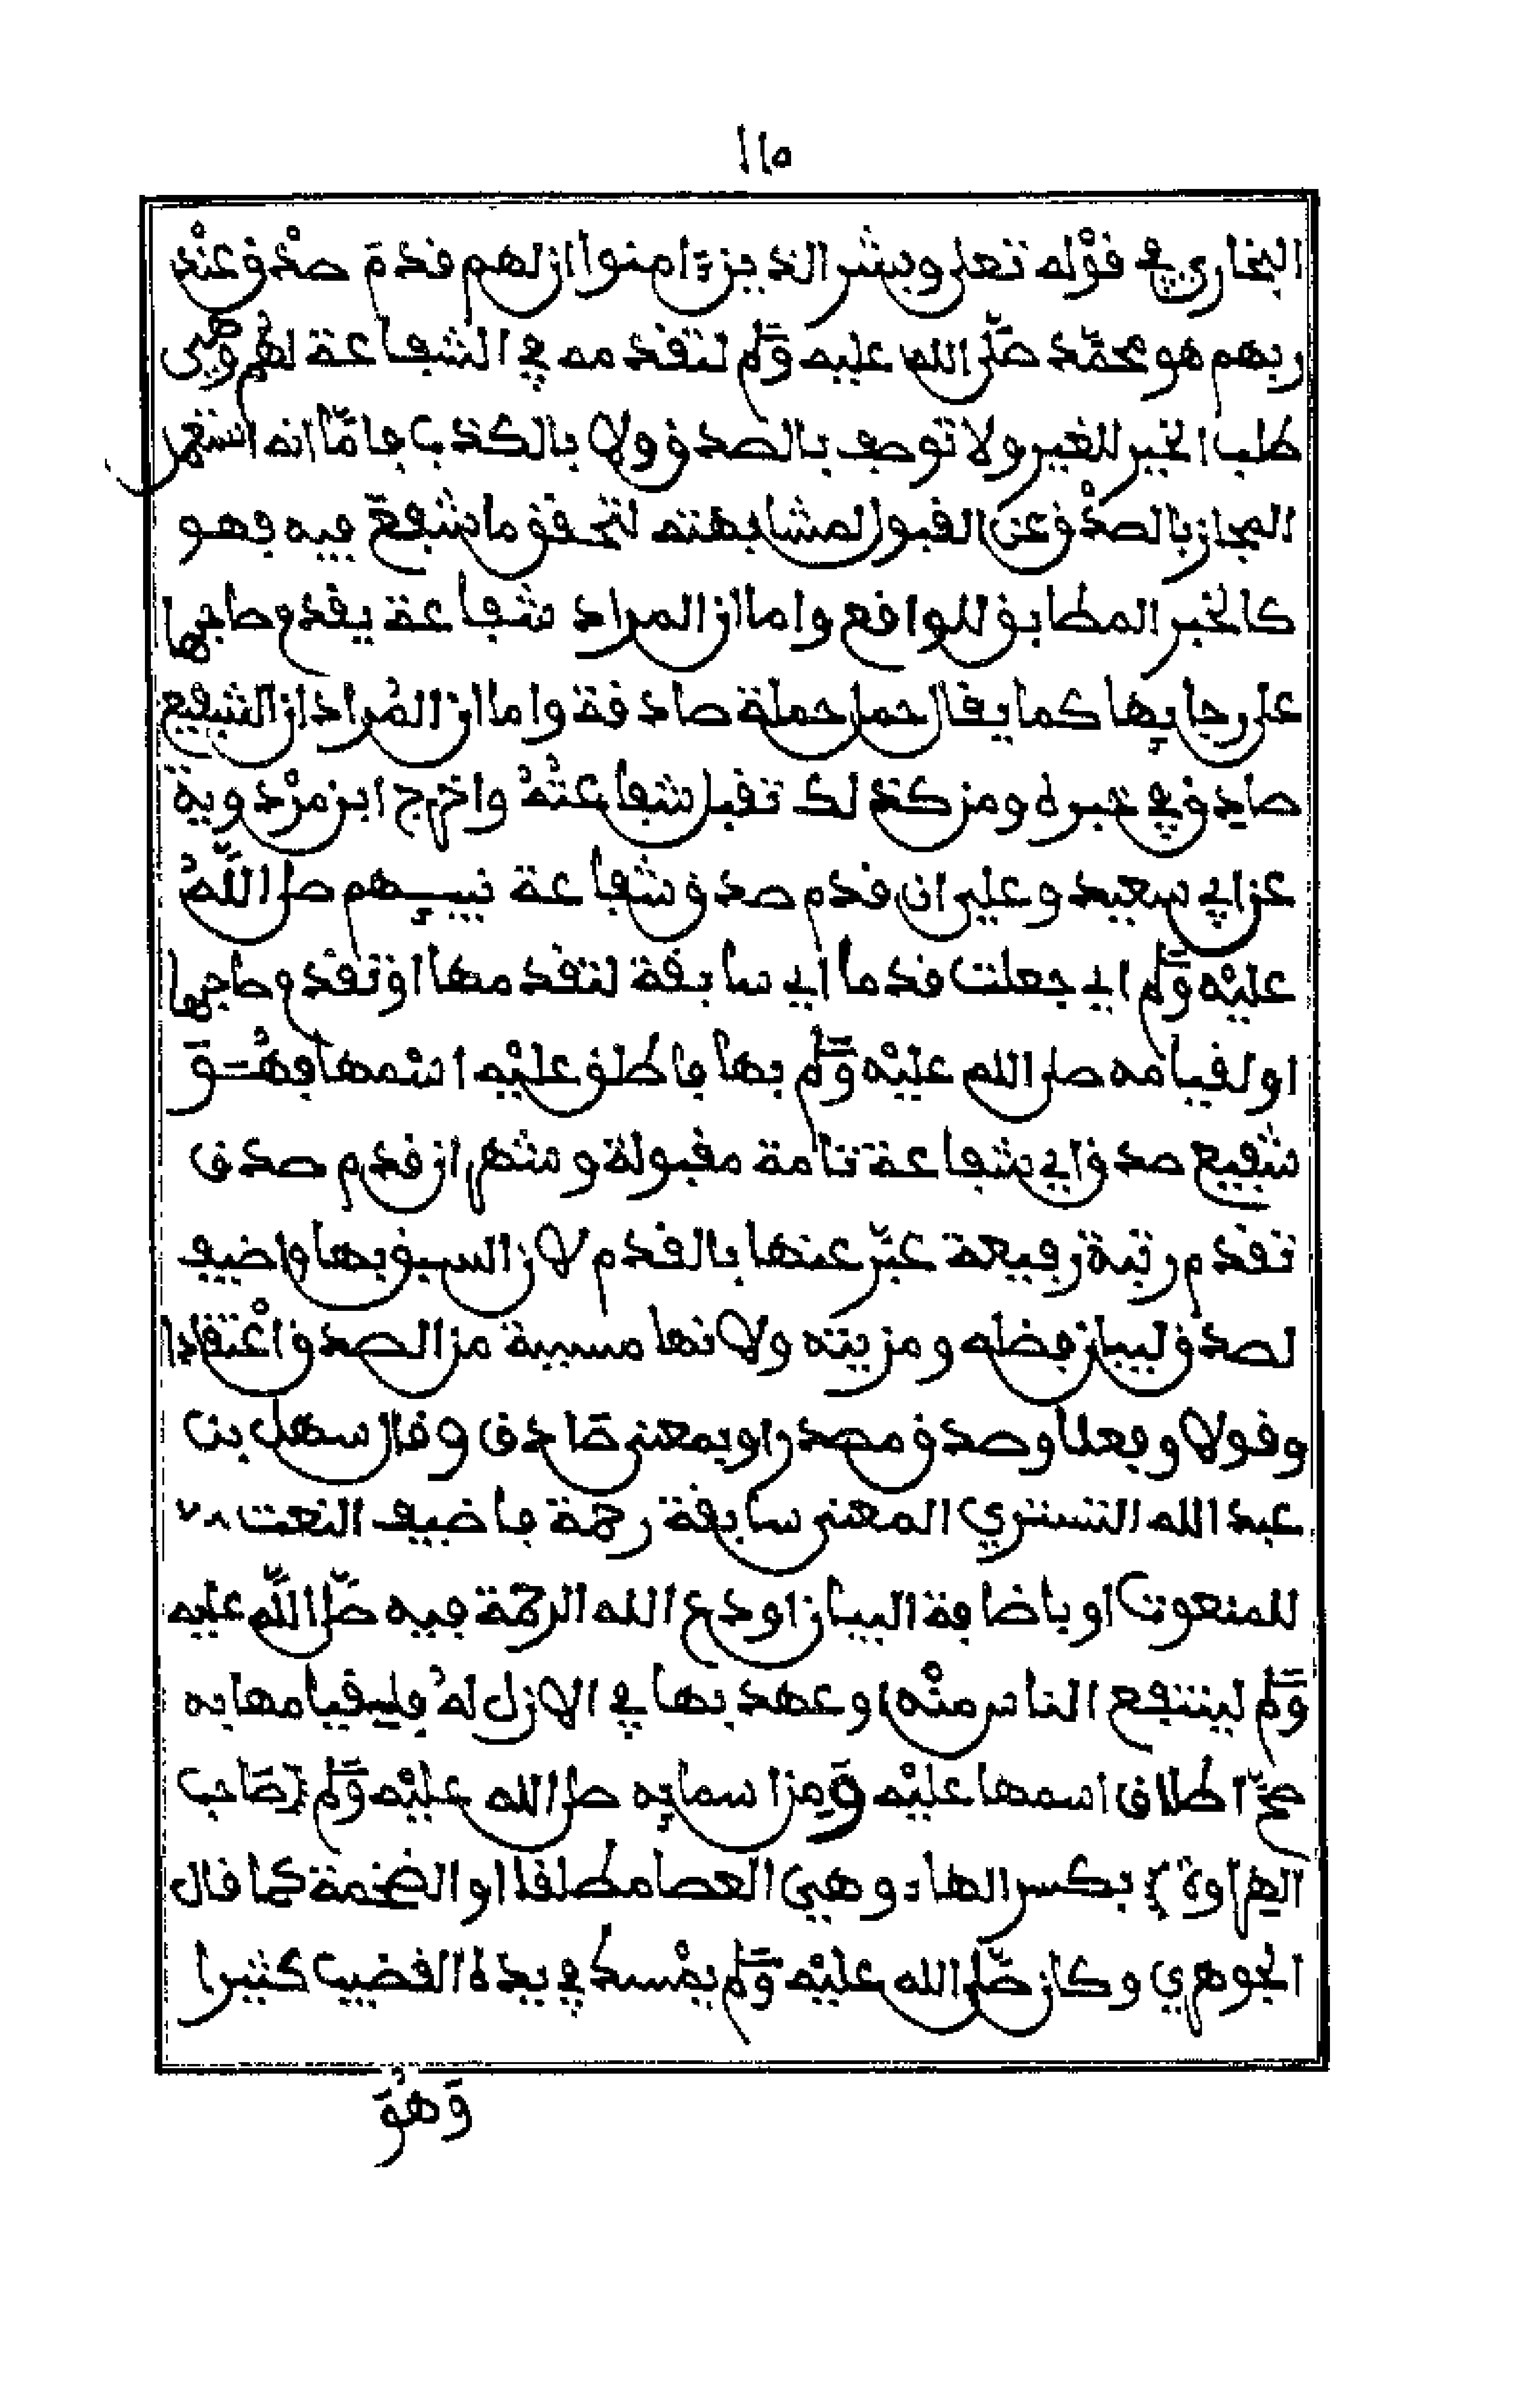 ١١٥
البخاري في قوله تعلى وبشر الذين ءامنوا ان لهم قدم صدق عند
ربهم هو محمد صلى الله عليه وسلم لتقدمه في الشفاعة لهم وهي
طلب الخير للغير ولا توصف بالصدق ولا بالكذب فاما انه استعمل
المجاز بالصدق عن القبول لمشابهته لتحقق ما شفع فيه فهو
كالخبر المطابق للواقع واما ان المراد شفاعة يقدم صاحبها
على رجايها كما يقال حمل حملة صادقة واما ان المراد ان الشفيع
صادق في خبره ومن كذلك تقبل شفاعته واخرج ابن مردوية
عن ابي سعيد وعلي ان قدم صدق شفاعة نبيهم صلى الله
عليه وسلم اي جعلت قدما اي سابقة لتقدمها او تقدم صاحبها
او لقيامه صلى الله عليه وسلم بها فاطلق عليه اسمها فهو
شفيع صدق اي شفاعة تامة مقبولة ومنهم ان قدم صدق
تقدم رتبة رفيعة عبر عنها بالقدم لان السبق بها واضيف
لصدق لبيان فضله ومزيته ولانها مسببة من الصدق اعتقادا
وقولا وفعلا وصدق مصدر او بمعنى صادق وقال سهل بن
عبد الله التستري المعنى سابقة رحمة فاضيف النعت
للمنعوت او باضافة البيان اودع الله الرحمة فيه صلى الله عليه
وسلم لينتفع الناس منه او عهد بها في الازل له فلقيامها به
صح اطلاق اسمها عليه ومن اسمايه صلى الله عليه وسلم صاحب
الهراوة بكسر الهاء وهي العصا مطلقا او الضخمة كما قال
الجوهري وكان صلى الله عليه وسلم يمسك في يده القضيب كثيرا
وهو